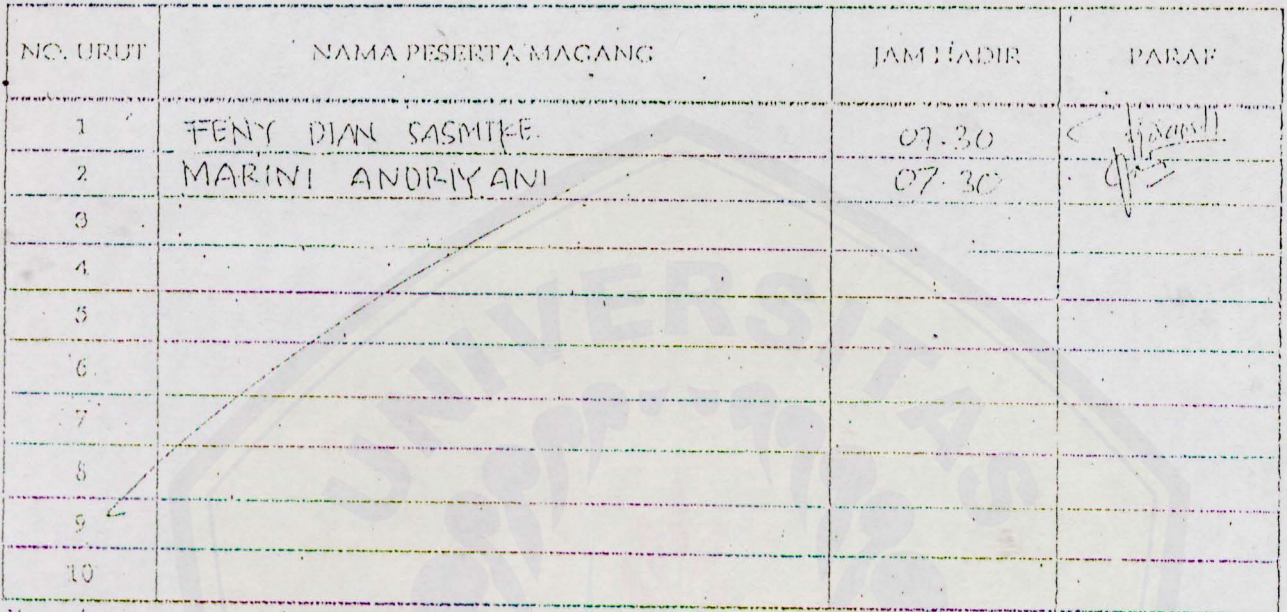 NO. URUT NAMA PESERTA MAGANG JAM HADIR PARAF
1 FENY DIAN SASMIKE 07.30
2 MARINI ANDRIYANI 07.30
3
4
5
6
7
8
9
10
UNIVERSITAS